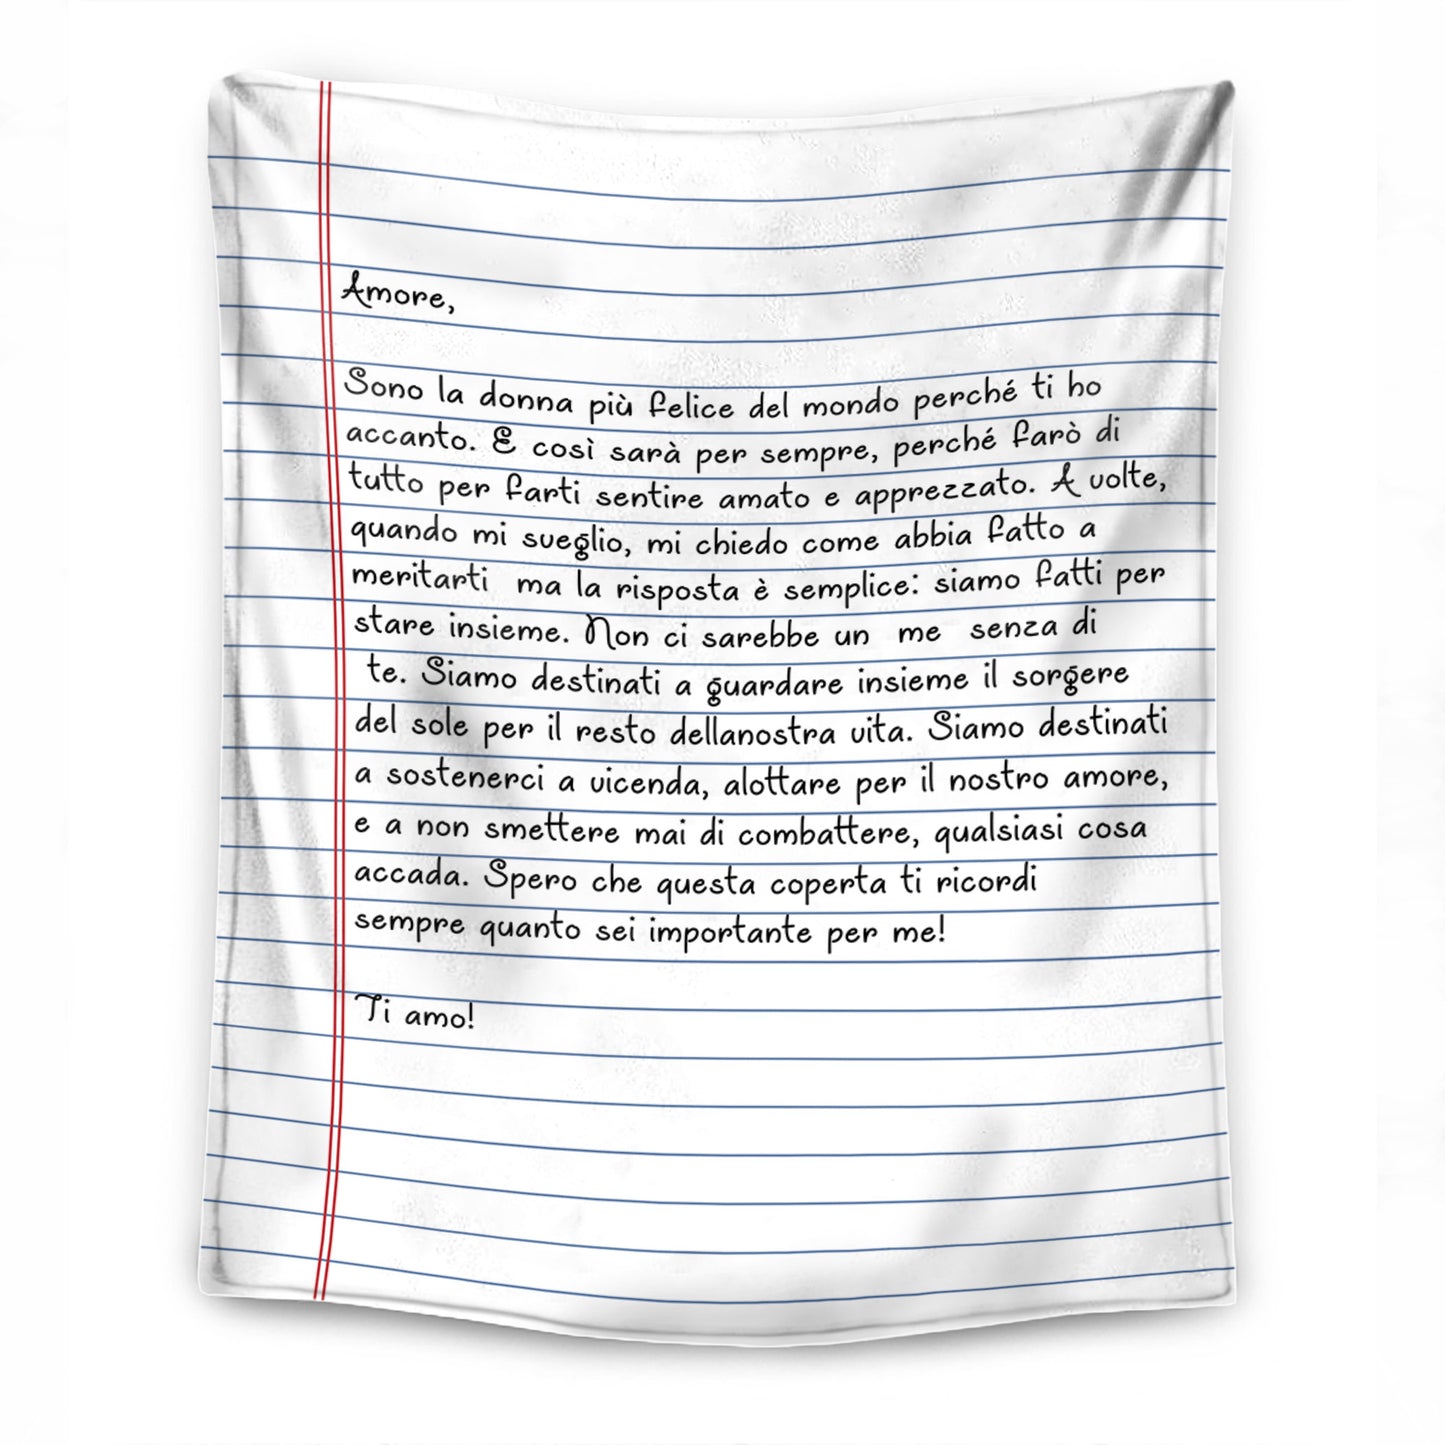 Amore,
Sono la donna più felice del mondo perché ti ho
accanto. E così sarà per sempre, perché farò di
tutto per farti sentire amato e apprezzato. A volte,
quando mi sveglio, mi chiedo come abbia fatto a
meritarti ma la risposta è semplice: siamo fatti per
stare insieme. Non ci sarebbe un me senza di
te. Siamo destinati a guardare insieme il sorgere
del sole per il resto dellanostra vita. Siamo destinati
a sostenerci a vicenda, alottare per il nostro amore,
e a non smettere mai di combattere, qualsiasi cosa
accada. Spero che questa coperta ti ricordi
sempre quanto sei importante per me!
Ti amo!